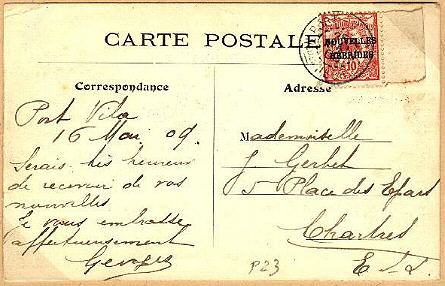 CARTE POSTALE
NOUVELLES
HÉBRIDES
10
Correspondance
Adresse
Port Vila
16 Mai 09.
Serais très heureux
de recevoir de vos
nouvelles
Je vous embrasse
affectueusement
Georges
Mademoiselle
J Gerbet
5 Place des Epars
Chartres
E &
P23